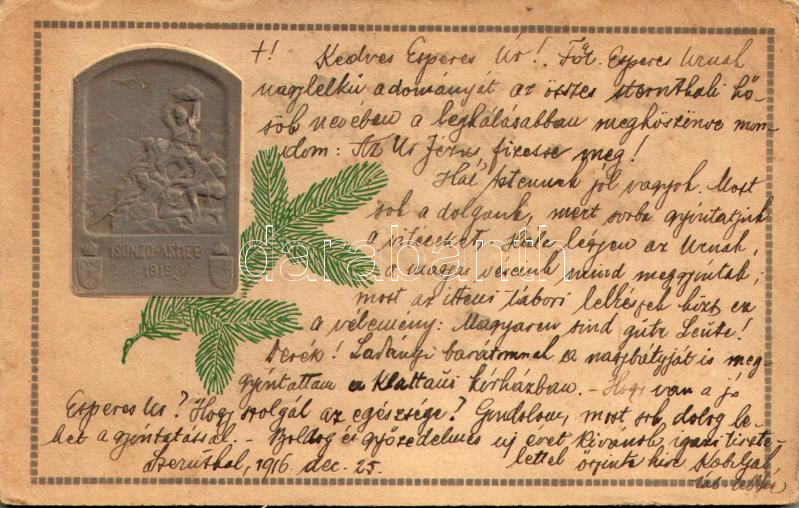 +! Kedves Esperes Úr! Főt. Esperes Urnak
nagylelkű adományát az összes sternthali hő-
sök nevében a leghálásabban megköszönve mon-
dom: Az Úr Jézus fizesse meg!
Hál' Istennek jól vagyok. Most
sok a dolgunk, mert sorba gyóntatjuk
a vitézeket. Hála légyen az Urnak,
a magyar véreink mind meggyóntak;
most az itteni tábori lelkészek közt ez
a vélemény: Magyaren sind gute Leute!
Derék! Ladányi barátommal a nagybátyját is meg-
gyóntattam a Klattaui kórházban. - Hogy van a jó
Esperes Úr? Hogy szolgál az egészsége? Gondolom, most sok dolog le-
het a gyóntatással. - Boldog és győzedelmes új évet kívánok, igazi tiszte-
lettel őszinte híve
Szernthal, 1916. dec. 25.
ISONZO-ARMEE
1915
darabanth